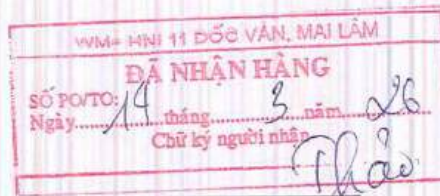 WM+ HNI 11 DỐC VÂN, MAI LÂM
ĐÃ NHẬN HÀNG
SỐ PO/TO:
Ngày 14 tháng 3 năm 26
Chữ ký người nhận
Thảo